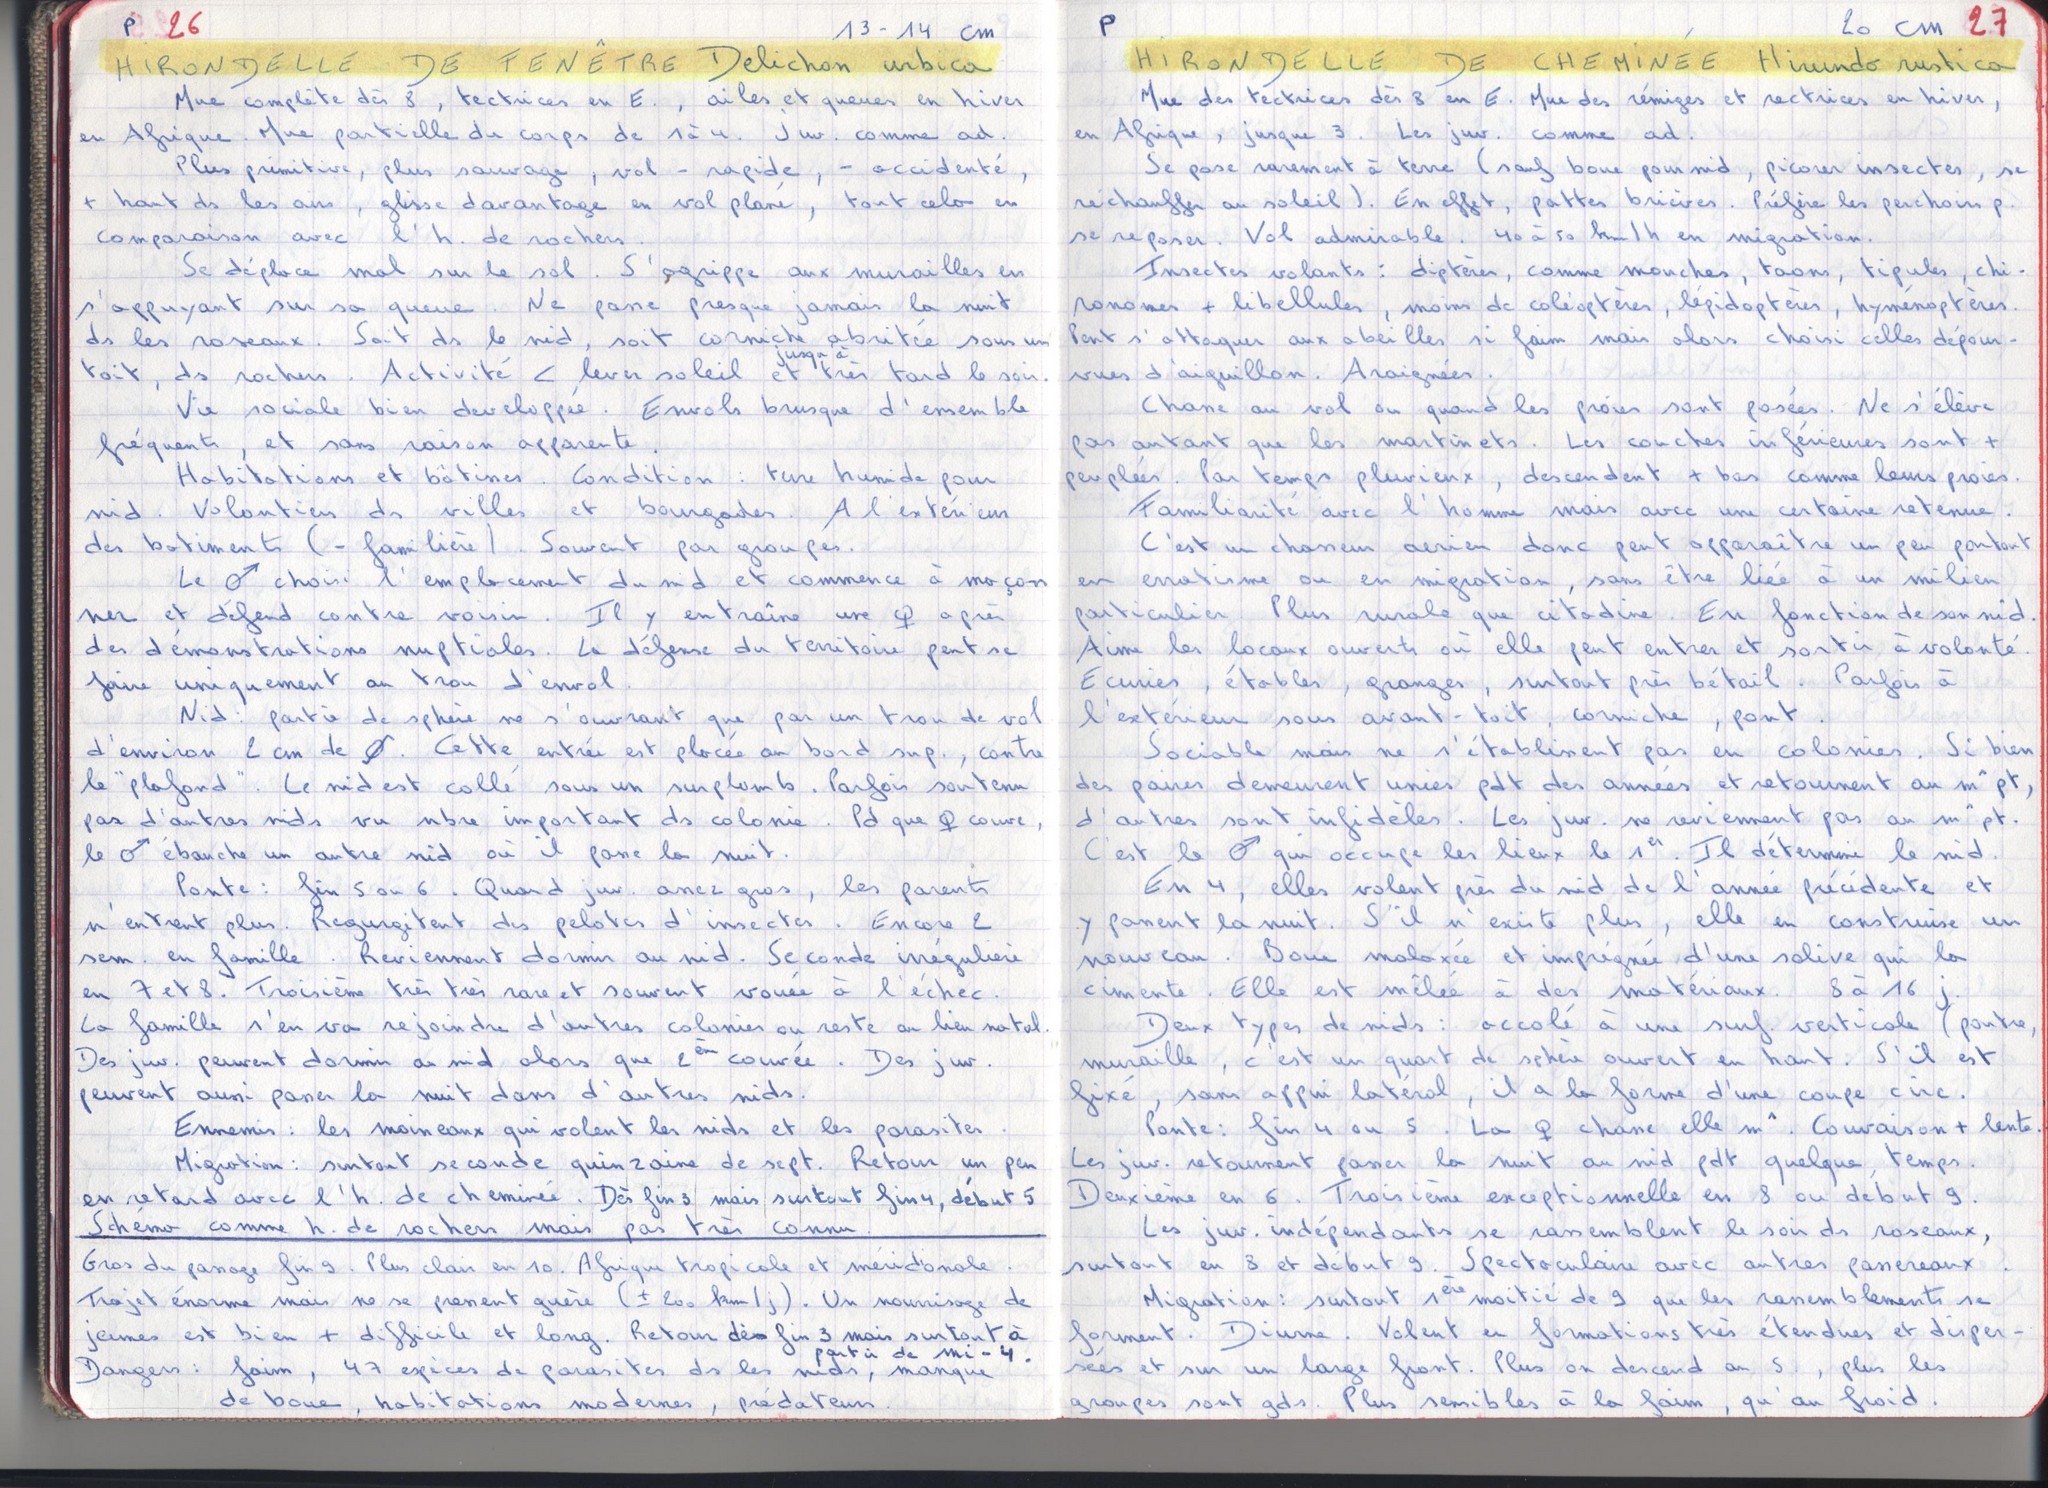 P 26 13-14 cm
HIRONDELLE DE FENÊTRE Delichon urbica
Mue complète dès 8, tectrices en E., ailes et queues en hiver
en Afrique. Mue partielle du corps de 1 à 4. Juv. comme ad.
Plus primitive, plus sauvage, vol - rapide, - accidenté,
+ haut ds les airs, glisse davantage en vol plané, tout cela en
comparaison avec l'h. de rochers.
Se déplace mal sur le sol. S'agrippe aux murailles en
s'appuyant sur sa queue. Ne passe presque jamais la nuit
ds les roseaux. Soit ds le nid, soit corniche abritée sous un
toit, ds rochers. Activité < lever soleil et jusqu'à très tard le soir.
Vie sociale bien developpée. Envols brusque d'ensemble
fréquents, et sans raison apparente.
Habitations et bâtines. Condition : terre humide pour
nid. Volontiers ds villes et bourgades. A l'extérieur
des batiments (- familière). Souvent par groupes.
Le ♂ choisi l'emplacement du nid et commence à maçon
ner et défend contre voisin. Il y entraîne une ♀ après
des démonstrations nuptiales. La défense du territoire peut se
faire uniquement au trou d'envol.
Nid : partie de sphère ne s'ouvrant que par un trou de vol
d'environ 2 cm de Ø. Cette entrée est placée au bord sup., contre
le "plafond". Le nid est collé sous un surplomb. Parfois soutenu
par d'autres nids vu nbre important ds colonie. Pd que ♀ couve,
le ♂ ébauche un autre nid où il passe la nuit.
Ponte : fin 5 ou 6. Quand juv. assez gros, les parents
n'entrent plus. Regurgitent des pelotes d'insectes. Encore 2
sem. en famille. Reviennent dormir au nid. Seconde irrégulière
en 7 et 8. Troisième très très rare et souvent vouée à l'échec.
La famille s'en va rejoindre d'autres colonies ou reste au lieu natal.
Des juv. peuvent dormir au nid alors que 2èm couvée. Des juv.
peuvent aussi passer la nuit dans d'autres nids.
Ennemis : les moineaux qui volent les nids et les parasites.
Migration : surtout seconde quinzaine de sept. Retour un peu
en retard avec l'h. de cheminée. Dès fin 3 mais surtout fin 4, début 5
Schéma comme h. de rochers mais pas très connu.
Gros du passage fin 9. Plus clair en 10. Afrique tropicale et méridionale.
Trajet énorme mais ne se pressent guère (± 200 km/j). Un nourrissage de
jeunes est bien + difficile et long. Retour dès fin 3 mais surtout à
partir de mi-4.
Dangers : faim, 47 espèces de parasites ds les nids, manque
de boue, habitations modernes, prédateurs.
P 20 cm 27
HIRONDELLE DE CHEMINÉE Hirundo rustica
Mue des tectrices dès 8 en E. Mue des rémiges et rectrices en hiver,
en Afrique, jusque 3. Les juv. comme ad.
Se pose rarement à terre (sauf boue pour nid, picorer insectes, se
réchauffer au soleil). En effet, pattes brièves. Préfère les perchoirs p.
se reposer. Vol admirable. 40 à 50 km/h en migration.
Insectes volants : diptères, comme mouches, taons, tipules, chi-
ronomes + libellules, moins de coléoptères, lépidoptères, hyménoptères.
Peut s'attaquer aux abeilles si faim mais alors choisi celles dépour-
vues d'aiguillon. Araignées.
Chasse au vol ou quand les proies sont posées. Ne s'élève
pas autant que les martinets. Les couches inférieures sont +
peuplées. Par temps pluvieux, descendent + bas comme leurs proies.
Familiarité avec l'homme mais avec une certaine retenue.
C'est un chasseur aerien donc peut apparaître un peu partout
en erratisme ou en migration, sans être liée à un milieu
particulier. Plus rurale que citadine. En fonction de son nid.
Aime les locaux ouverts où elle peut entrer et sortir à volonté.
Ecuries, étables, granges, surtout près bétail. Parfois à
l'extérieur sous avant-toit, corniche, pont.
Sociable mais ne s'établissent pas en colonies. Si bien
des paires demeurent unies pdt des années et retournent au m^ pt,
d'autres sont infidèles. Les juv. ne reviennent pas au m^ pt.
C'est le ♂ qui occupe les lieux le 1er. Il détermine le nid.
En 4, elles volent près du nid de l'année précédente et
y passent la nuit. S'il n'existe plus, elle en construise un
nouveau. Boue malaxée et imprégnée d'une salive qui la
cimente. Elle est mêlée à des matériaux. 8 à 16 j.
Deux types de nids : accolé à une surf. verticale (poutre,
muraille, c'est un quart de sphère ouvert en haut. S'il est
fixé, sans appui latéral, il a la forme d'une coupe circ.
Ponte : fin 4 ou 5. La ♀ chasse elle m^. Couvaison + lente.
Les juv. retournent passer la nuit au nid pdt quelque temps.
Deuxième en 6. Troisième exceptionnelle en 8 ou début 9.
Les juv. indépendants se rassemblent le soir ds roseaux,
surtout en 8 et début 9. Spectaculaire avec autres passereaux.
Migration : surtout 1ère moitié de 9 que les rassemblements se
forment. Diurne. Volent en formations très étendues et disper-
sées et sur un large front. Plus on descend au S., plus les
groupes sont gds. Plus sensibles à la faim, qu'au froid.